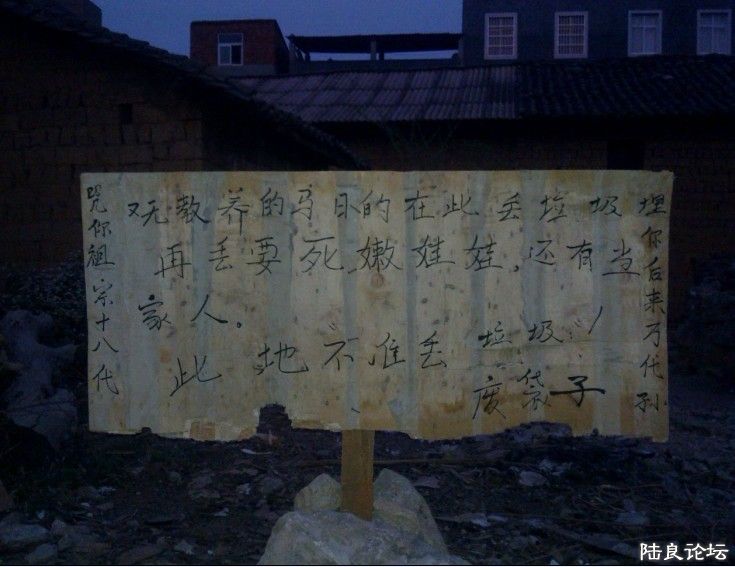 咒你祖宗十八代
又无教养的马日的在此丢垃圾
再丢要死嫩娃娃,还有当
家人。
此地不准丢垃圾!
废袋子
埋你后来万代孙
陆良论坛